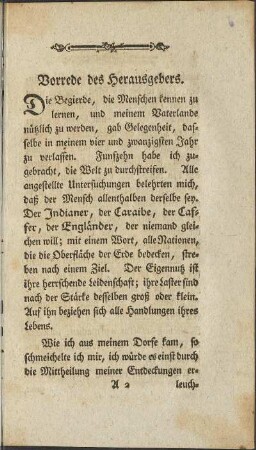 Vorrede des Herausgebers.
Die Begierde, die Menschen kennen zu
lernen, und meinem Vaterlande
nützlich zu werden, gab Gelegenheit, das-
selbe in meinem vier und zwanzigsten Jahr
zu verlassen. Funfzehn habe ich zu-
gebracht, die Welt zu durchstreifen. Alle
angestellte Untersuchungen belehrten mich,
daß der Mensch allenthalben derselbe sey.
Der Indianer, der Caraibe, der Caf-
fer, der Engländer, der niemand glei-
chen will; mit einem Wort, alle Nationen,
die die Oberfläche der Erde bedecken, stre-
ben nach einem Ziel. Der Eigennutz ist
ihre herrschende Leidenschaft; ihre Laster sind
nach der Stärke desselben groß oder klein.
Auf ihn beziehen sich alle Handlungen ihres
Lebens.
Wie ich aus meinem Dorfe kam, so
schmeichelte ich mir, ich würde es einst durch
die Mittheilung meiner Entdeckungen er-
A 2 leuch-